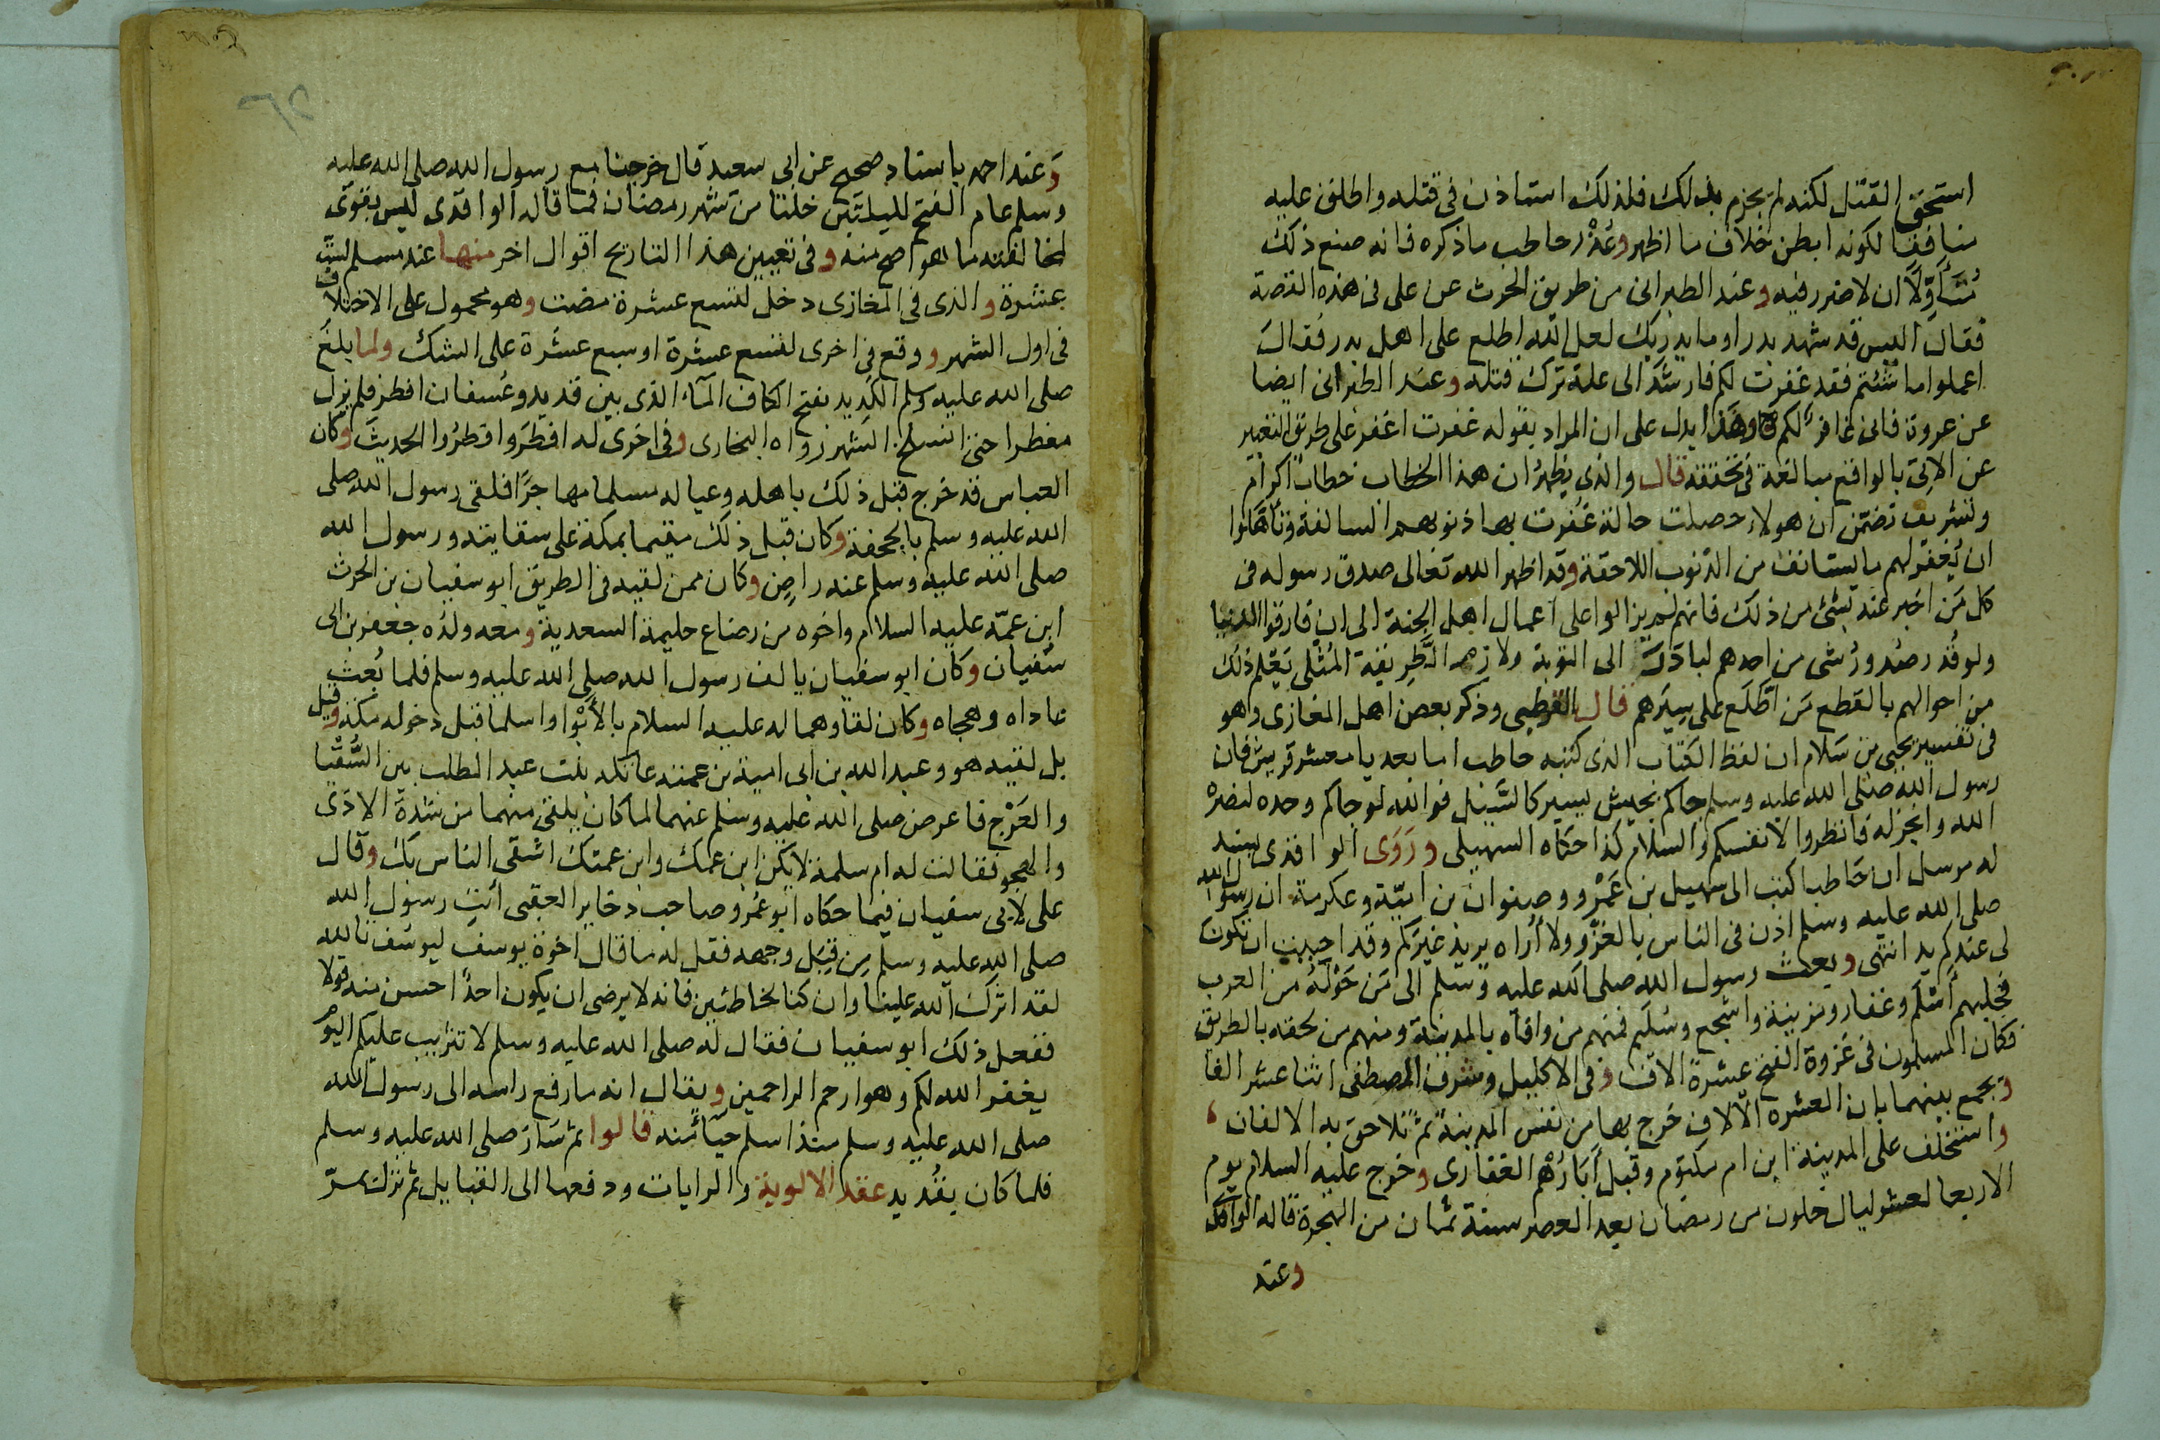 استحق القتل لكنه لم يجزم بذلك فلذلك استاذن في قتله واطلق عليه
منافقا لكونه ابطن خلاف ما اظهر وعذر حاطب ما ذكره فانه صنع ذلك
متأولا ان لا ضرر فيه وعند الطبراني من طريق الحرث عن على في هذه القصة
فقال اليس قد شهد بدرا وما يدريك لعل الله اطلع على اهل بدر فقال
اعملوا ما شئتم فقد غفرت لكم فارشد الى علة ترك قتله وعند الطبراني ايضا
عن عروة فانى غافر لكم وهذا يدل على ان المراد بقوله غفرت اغفر على طريق التعبير
عن الآتى بالواقع مبالغة في تحققه قال والذي يظهر ان هذا الخطاب خطاب اكرام
وتشريف تضمن ان هولاء حصلت حالة غفرت بها ذنوبهم السالفة وتأهلوا
ان يغفر لهم ما يستانف من الذنوب اللاحقة وقد اظهر الله تعالى صدق رسوله في
كل من اخبر عنه بشئ من ذلك فانهم لم يزالوا على اعمال اهل الجنة الى ان فارقوا الدنيا
ولو قدر صدور شى من احدهم لبادر الى التوبة ولازم الطريقة المثلى يعلم ذلك
من احوالهم بالقطع من اطلع على سيرهم قال القرطبى وذكر بعض اهل المغازى وهو
في تفسير يحيى بن سلام ان لفظ الكتاب الذى كتبه حاطب اما بعد يا معشر قريش فان
رسول الله صلى الله عليه وسلم جاكم بجيش يسير كالسيل فوالله لو جاكم وحده لنصره
الله وانجز له فانظروا لانفسكم والسلام كذا حكاه السهيلى وروى الواقدى بسند
له مرسل ان حاطبا كتب الى سهيل بن عمرو وصفوان بن امية وعكرمة ان رسول الله
صلى الله عليه وسلم اذن في الناس بالغزو ولا أراه يريد غيركم وقد احببت ان تكون
لى عندكم يد انتهى وبعث رسول الله صلى الله عليه وسلم الى من حوله من العرب
فجلبهم أسلم وغفار ومزينة واشجع وسليم فمنهم من وافاه بالمدينة ومنهم من لحقه بالطريق
فكان المسلمون في غزوة الفتح عشرة الاف وفي الاكليل وشرف المصطفى اثنا عشر الفا
ويجمع بينهما بان العشرة الالاف خرج بها من نفس المدينة ثم تلاحق به الالفان
واستخلف على المدينة ابن ام مكتوم وقيل أبا رهم الغفارى وخرج عليه السلام يوم
الاربعا لعشر ليال خلون من رمضان بعد العصر سنة ثمان من الهجرة قاله الواقدى
وعند
وعند احمد باسناد صحيح عن ابى سعيد قال خرجنا مع رسول الله صلى الله عليه
وسلم عام الفتح لليلتين خلتا من شهر رمضان فما قاله الواقدى ليس بقوى
لمخالفته ما هو اصح منه وفي تعيين هذا التاريخ اقوال اخر منها عند مسلم لست
عشرة والذى في المغازى دخل لتسع عشرة مضت وهو محمول على الاختلاف
في اول الشهر ووقع في اخرى لتسع عشرة او سبع عشرة على الشك ولما بلغ
صلى الله عليه وسلم الكديد بفتح الكاف الماء الذى بين قديد وعسفان افطر فلم يزل
مفطرا حتى انسلخ الشهر رواه البخارى وفي اخرى له افطر وافطروا الحديث وكان
العباس قد خرج قبل ذلك باهله وعياله مسلما مهاجرا فلقى رسول الله صلى
الله عليه وسلم بالجحفة وكان قبل ذلك مقيما بمكة على سقايته ورسول الله
صلى الله عليه وسلم عنه راض وكان ممن لقيه في الطريق ابو سفيان بن الحرث
ابن عمه عليه السلام واخوه من رضاع حليمة السعدية ومعه ولده جعفر بن ابى
سفيان وكان ابو سفيان يالف رسول الله صلى الله عليه وسلم فلما بعث
عاداه وهجاه وكان لقاوهما له عليه السلام بالأبوا واسلما قبل دخوله مكة وقيل
بل لقيه هو وعبد الله بن ابى امية بن عمته عاتكة بنت عبد المطلب بين السقيا
والعرج فاعرض صلى الله عليه وسلم عنهما لما كان يلقى منهما من شدة الاذى
والهجو فقالت له ام سلمة لا يكن ابن عمك وابن عمتك اشقى الناس بك وقال
على لابى سفيان فيما حكاه ابو عمرو وصاحب ذخاير العقبى أئت رسول الله
صلى الله عليه وسلم من قبل وجهه فقل له ما قال اخوة يوسف ليوسف تالله
لقد اثرك الله علينا وان كنا لخاطئين فانه لا يرضى ان يكون احدا احسن منه قولا
ففعل ذلك ابو سفيان فقال له صلى الله عليه وسلم لا تثريب عليكم اليوم
يغفر الله لكم وهو ارحم الراحمين ويقال انه ما رفع راسه الى رسول الله
صلى الله عليه وسلم منذ اسلم حياء منه قالوا ثم سار صلى الله عليه وسلم
فلما كان بقديد عقد الالوية والرايات ودفعها الى القبايل ثم نزل مر